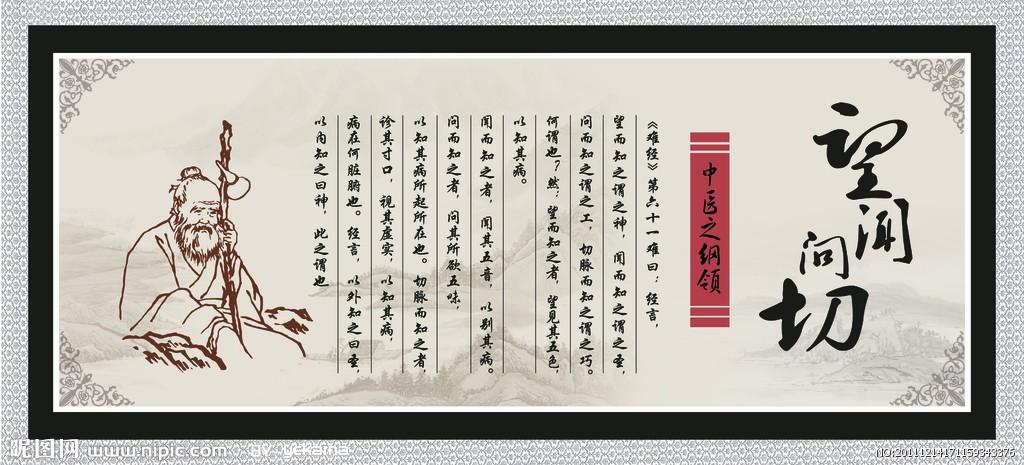 望闻问切
中医之纲领
《难经》第六十一难曰：经言，
望而知之谓之神，闻而知之谓之圣，
问而知之谓之工，切脉而知之谓之巧。
何谓也？然：望而知之者，望见其五色，
以知其病。
闻而知之者，闻其五音，以别其病。
问而知之者，问其所欲五味，
以知其病所起所在也。切脉而知之者，
诊其寸口，视其虚实，以知其病，
病在何脏腑也。经言，以外知之曰圣，
以内知之曰神，此之谓也
昵图网 www.nipic.com BY yekama
NO:20111214171159343376